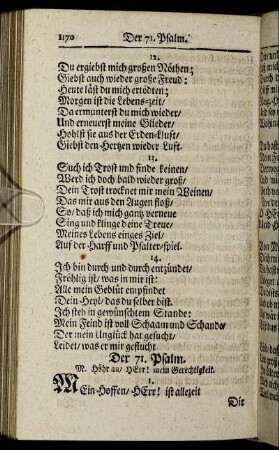 170 Der 71. Psalm.
12.
Du ergiebst mich großen Nöthen;
Giebst auch wieder große Freud:
Heute läst du mich ertödten;
Morgen ist die Lebens-zeit/
Da ermunterst du mich wieder/
Und erneuerst meine Glieder/
Hohlst sie aus der Erden-Kluft/
Giebst den Hertzen wieder Luft.
13.
Such ich Trost und finde keinen/
Werd ich doch bald wieder groß/
Dein Trost trocknet mir mein Weinen/
Das mir aus den Augen floß/
So/ daß ich mich gantz verneue
Sing und klinge deine Treue/
Meines Lebens einges Ziel/
Auf der Harff und Psalter-spiel.
14.
Ich bin durch und durch entzündet/
Fröhlig ist/ was in mir ist:
Alle mein Geblüt empfindet
Dein Heyl/ das du selber bist.
Ich steh in gewünschtem Stande:
Mein Feind ist voll Schaam und Schande/
Der mein Unglück hat gesucht/
Leidet/ was er mir geflucht.
Der 71. Psalm.
M. Höhr an/ HErr! mein Gerechtigkeit.
1.
MEin Hoffen/ HErr! ist allezeit
Dir